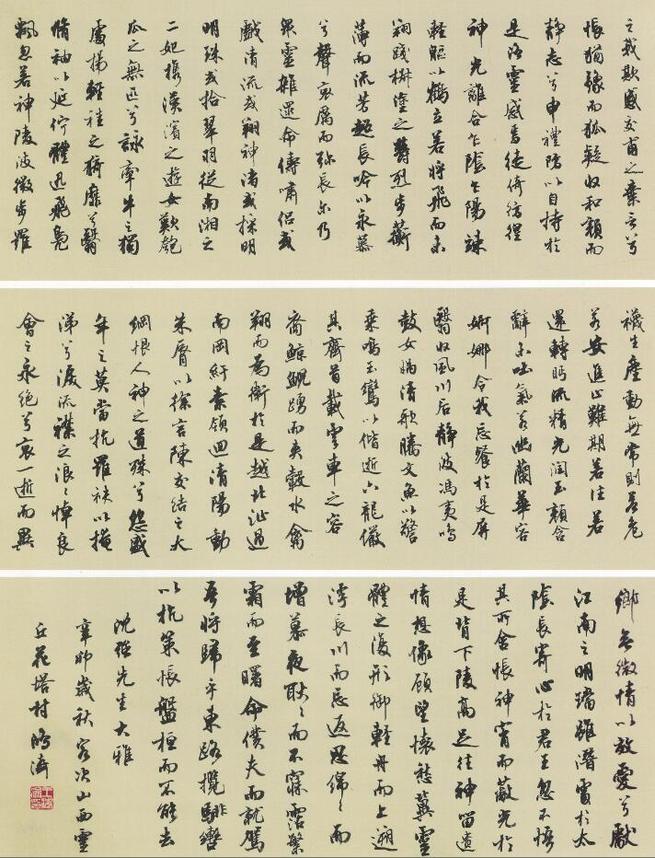 之我欺感交甫之棄言兮
悵猶豫而狐疑收和顏而
静志兮申禮防以自持於
是洛靈感焉徙倚彷徨
神光離合乍陰乍陽竦
輕軀以鶴立若將飛而未
翔踐椒塗之郁烈步蘅
薄而流芳超長吟以永慕
兮聲哀厲而彌長尔乃
眾靈雜遝命儔嘯侶或
戲清流或翔神渚或採明
明珠或拾翠羽從南湘之
二妃攜漢濱之遊女歎匏
瓜之無匹兮詠牽牛之獨
處揚輕袿之猗靡兮翳
脩袖以延佇體迅飛鳧
飄忽若神陵波微步羅
襪生塵動無常則若危
若安進止難期若往若
還轉眄流精光潤玉顏含
辭未吐氣若幽蘭華容
婀娜令我忘餐於是屏
翳收風川后静波馮夷鳴
鼓女媧清歌騰文魚以警
乘鳴玉鸞以偕逝六龍儼
其齊首載雲車之容
裔鯨鯢踴而夾轂水禽
翔而為衛於是越北沚過
南岡紆素領迴清陽動
朱脣以徐言陳交結之大
綱恨人神之道殊兮怨盛
年之莫當抗羅袂以掩
涕兮淚流襟之浪々悼良
會之永絶兮哀一逝而異
鄉無微情以效愛兮獻
江南之明璫雖潛處於太
陰長寄心於君王忽不悟
其所舍悵神宵而蔽光於
是背下陵高足往神留遺
情想像顧望懷愁冀靈
體之復形御輕舟而上遡
浮長川而忘返思綿々而
增慕夜耿々而不寐霑繁
霜而至曙命僕夫而就駕
吾將歸乎東路攬騑轡
以抗策悵盤桓而不能去
沈 先生大雅
辛卯歲秋客次山西靈
丘花塔村 濤